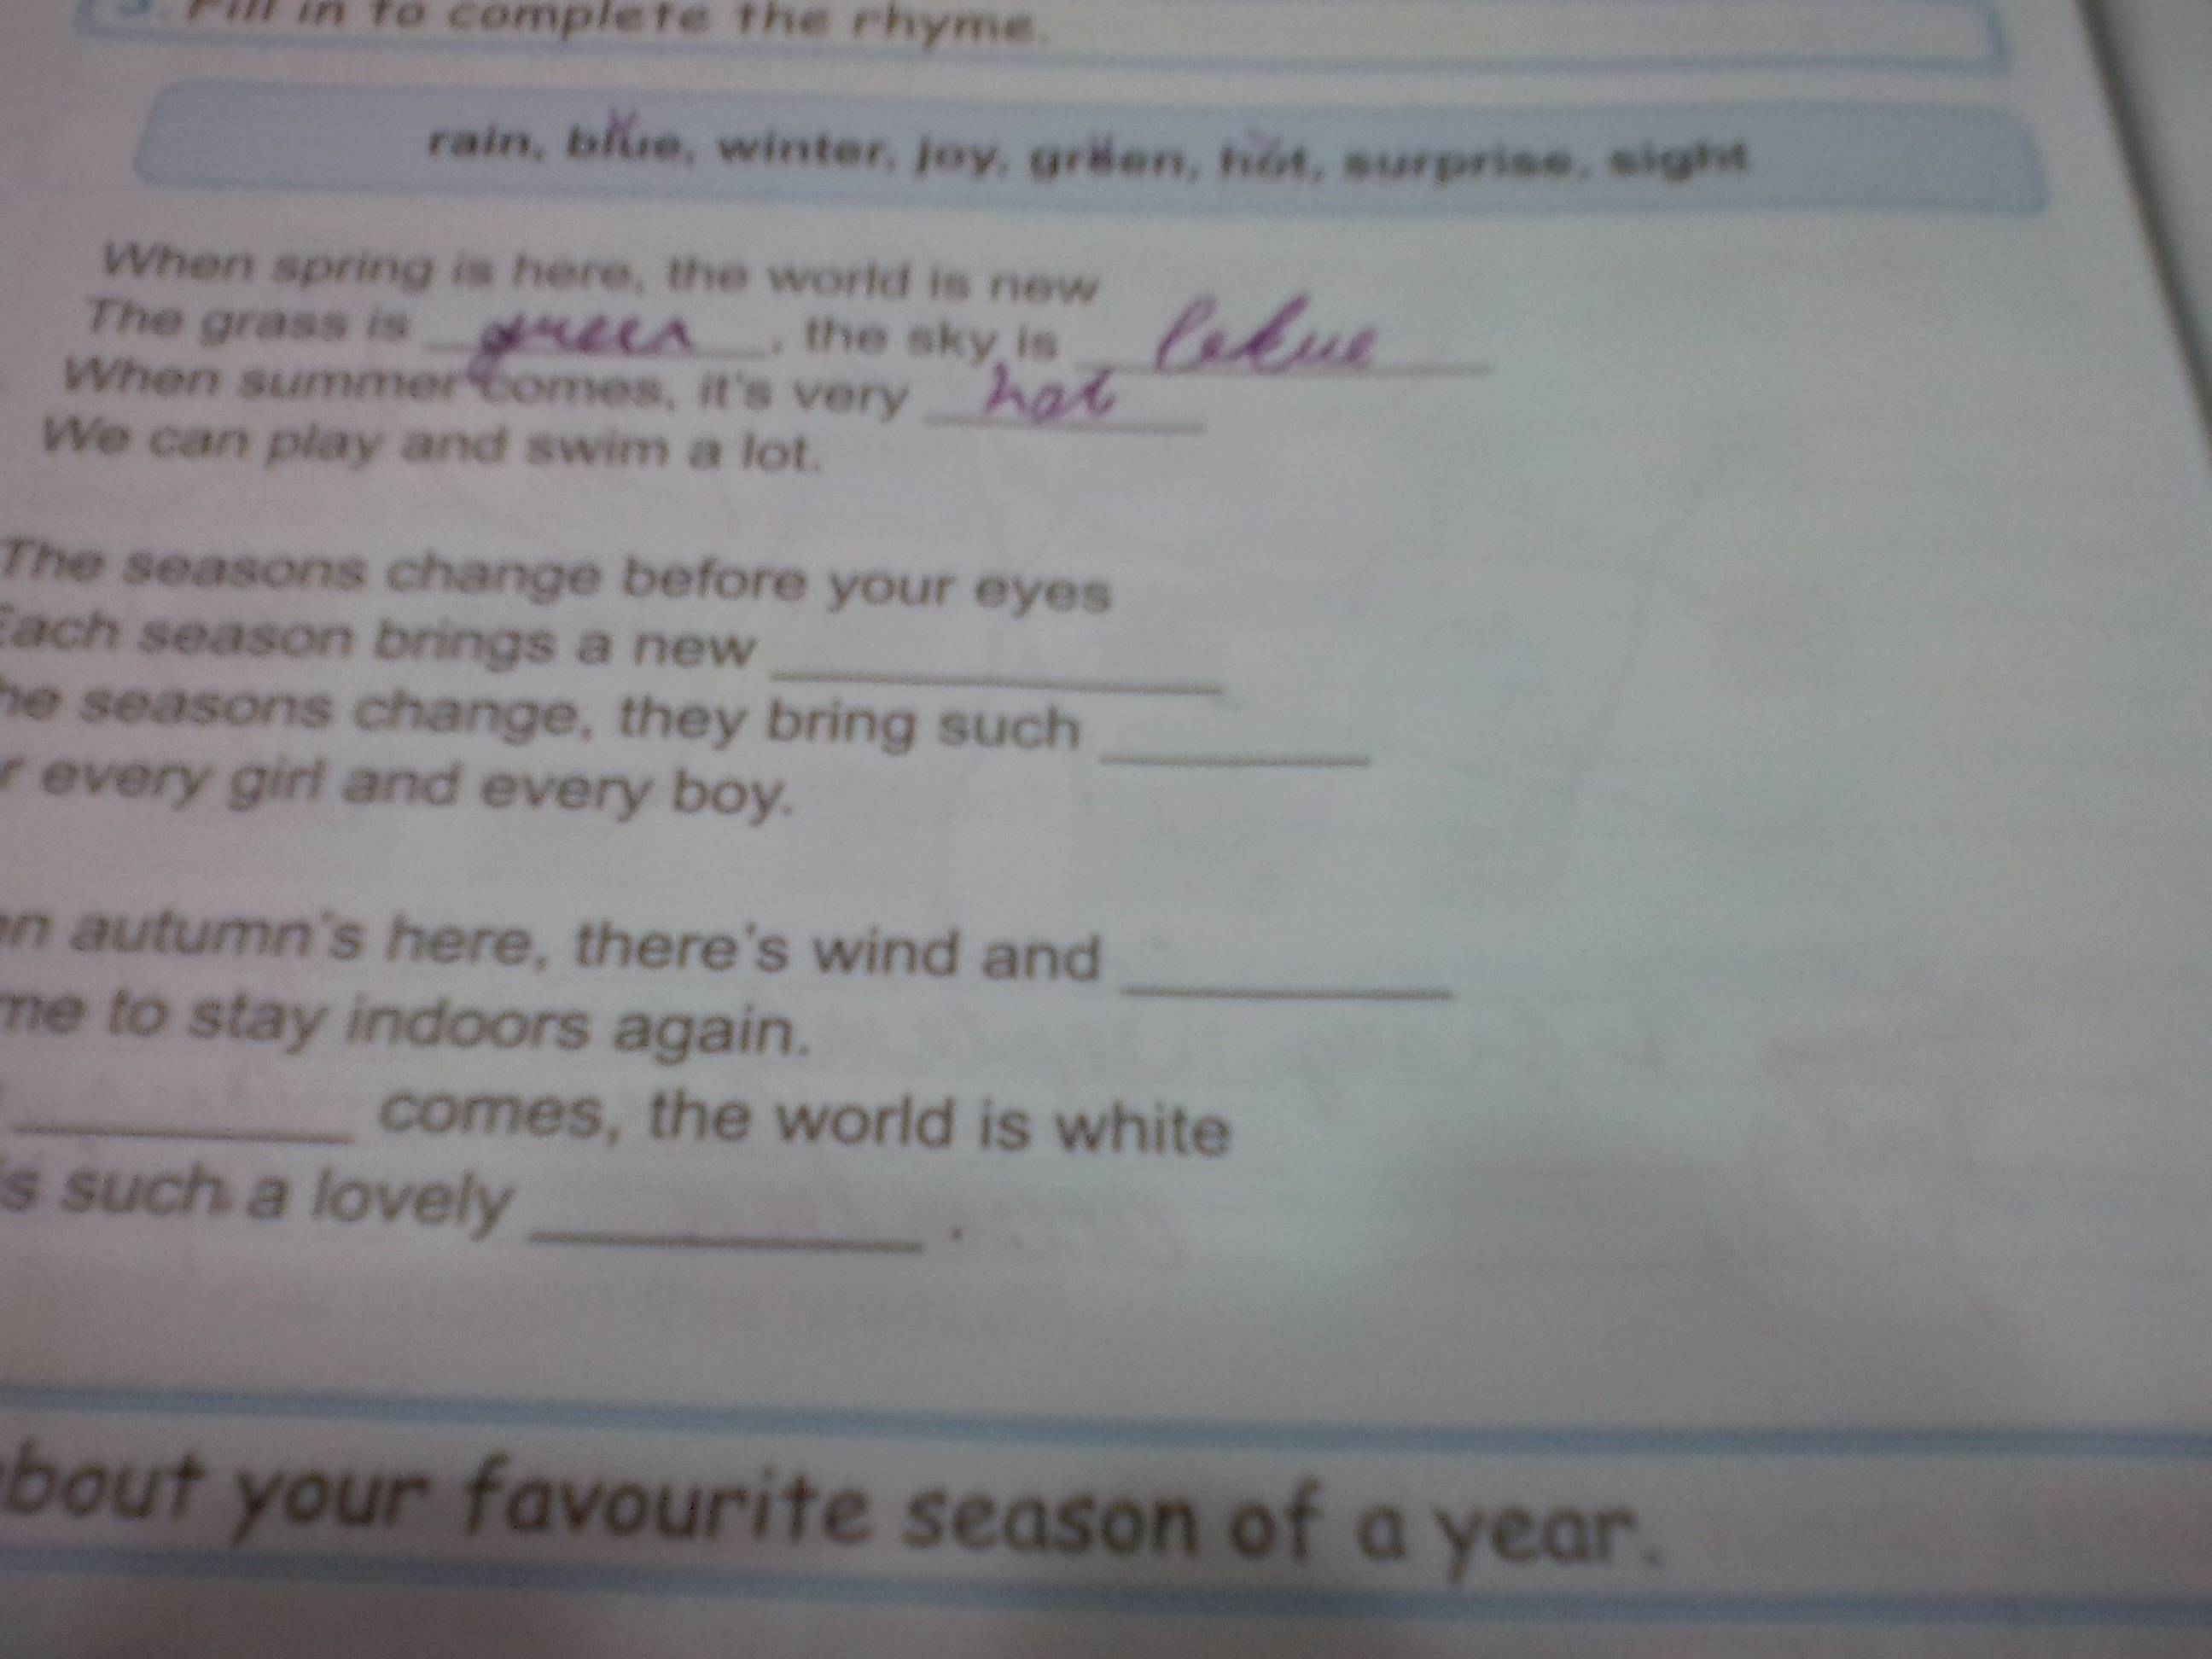 3. Fill in to complete the rhyme.
rain, blue, winter, joy, green, hot, surprise, sight
When spring is here, the world is new
The grass is green, the sky is blue
When summer comes, it's very hot
We can play and swim a lot.
The seasons change before your eyes
Each season brings a new
he seasons change, they bring such
r every girl and every boy.
en autumn's here, there's wind and
me to stay indoors again.
comes, the world is white
is such a lovely .
bout your favourite season of a year.